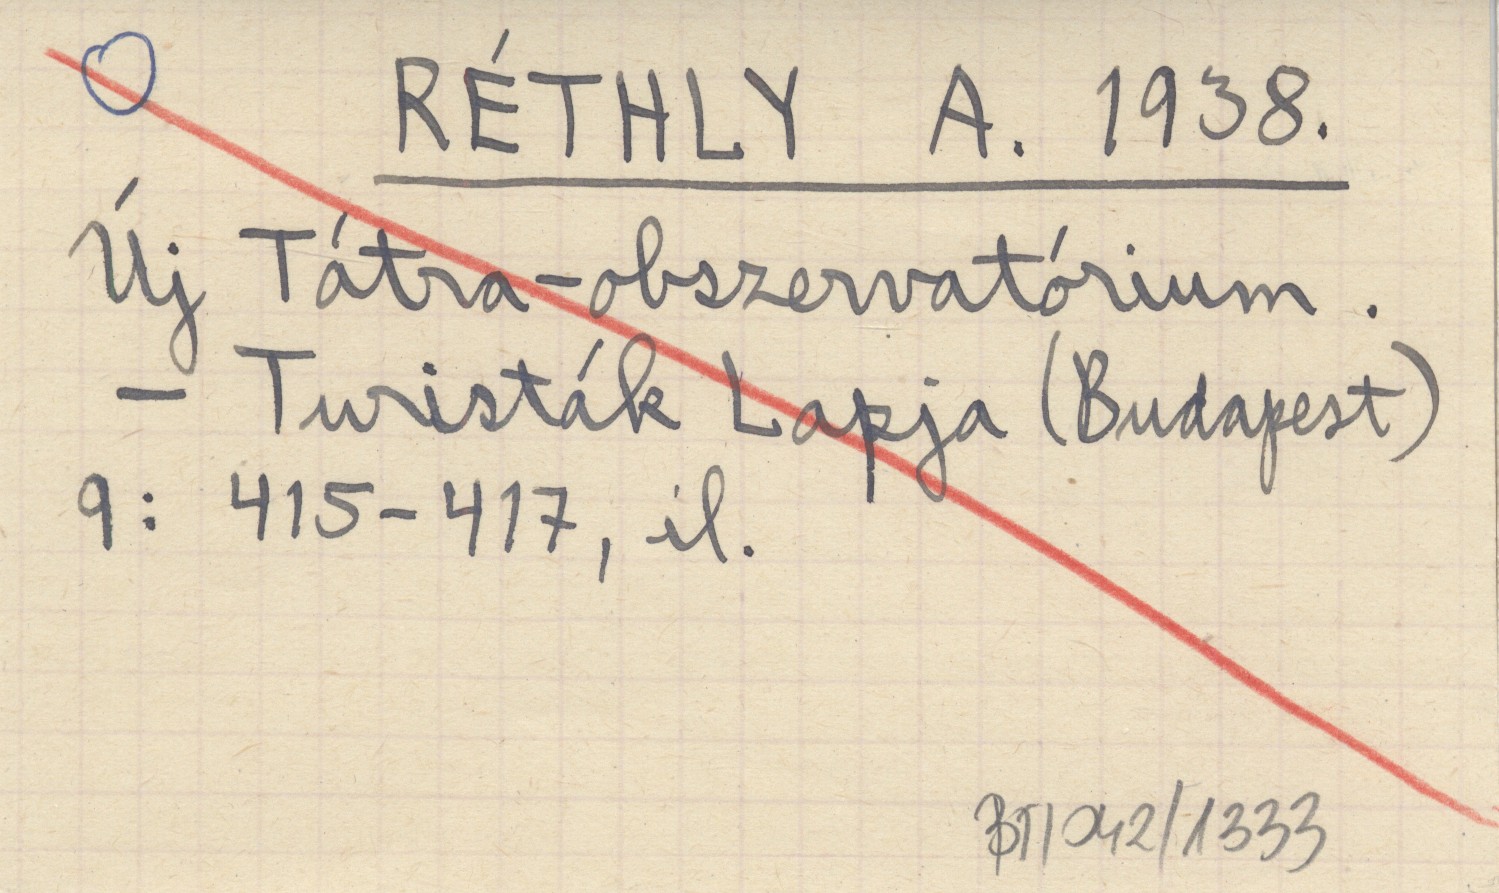 RÉTHLY A. 1938.
Új Tátra-obszervatórium.
- Turisták Lapja (Budapest)
9: 415-417, il.
BT/042/1333